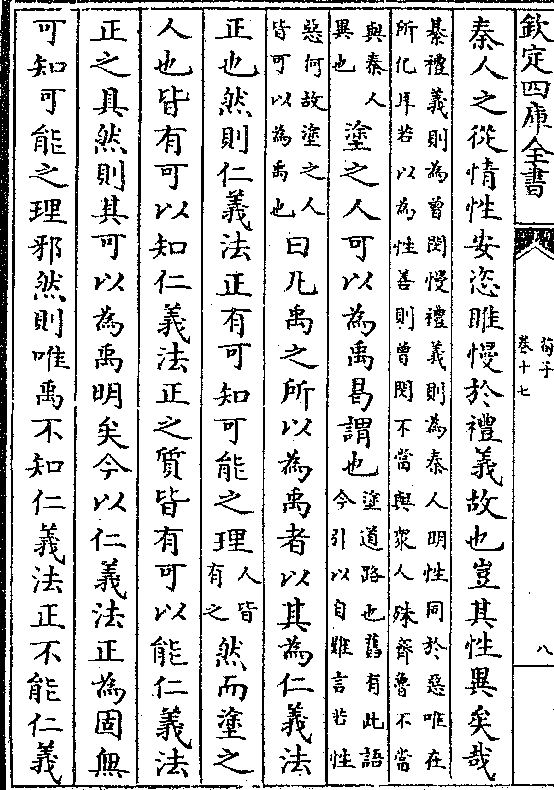 欽定四庫全書
荀子
卷十七
八
秦人之從情性安恣睢慢於禮義故也豈其性異矣哉
綦禮義則為曾閔慢禮義則為秦人明性同於惡唯在
所化耳若以為性善則曾閔不當與衆人殊齊魯不當
與秦人
異也
塗之人可以為禹曷謂也
塗道路也舊有此語
今引以自難言若性
惡何故塗之人
皆可以為禹也
曰凡禹之所以為禹者以其為仁義法
正也然則仁義法正有可知可能之理
人皆
有之
然而塗之
人也皆有可以知仁義法正之質皆有可以能仁義法
正之具然則其可以為禹明矣今以仁義法正為固無
可知可能之理邪然則唯禹不知仁義法正不能仁義